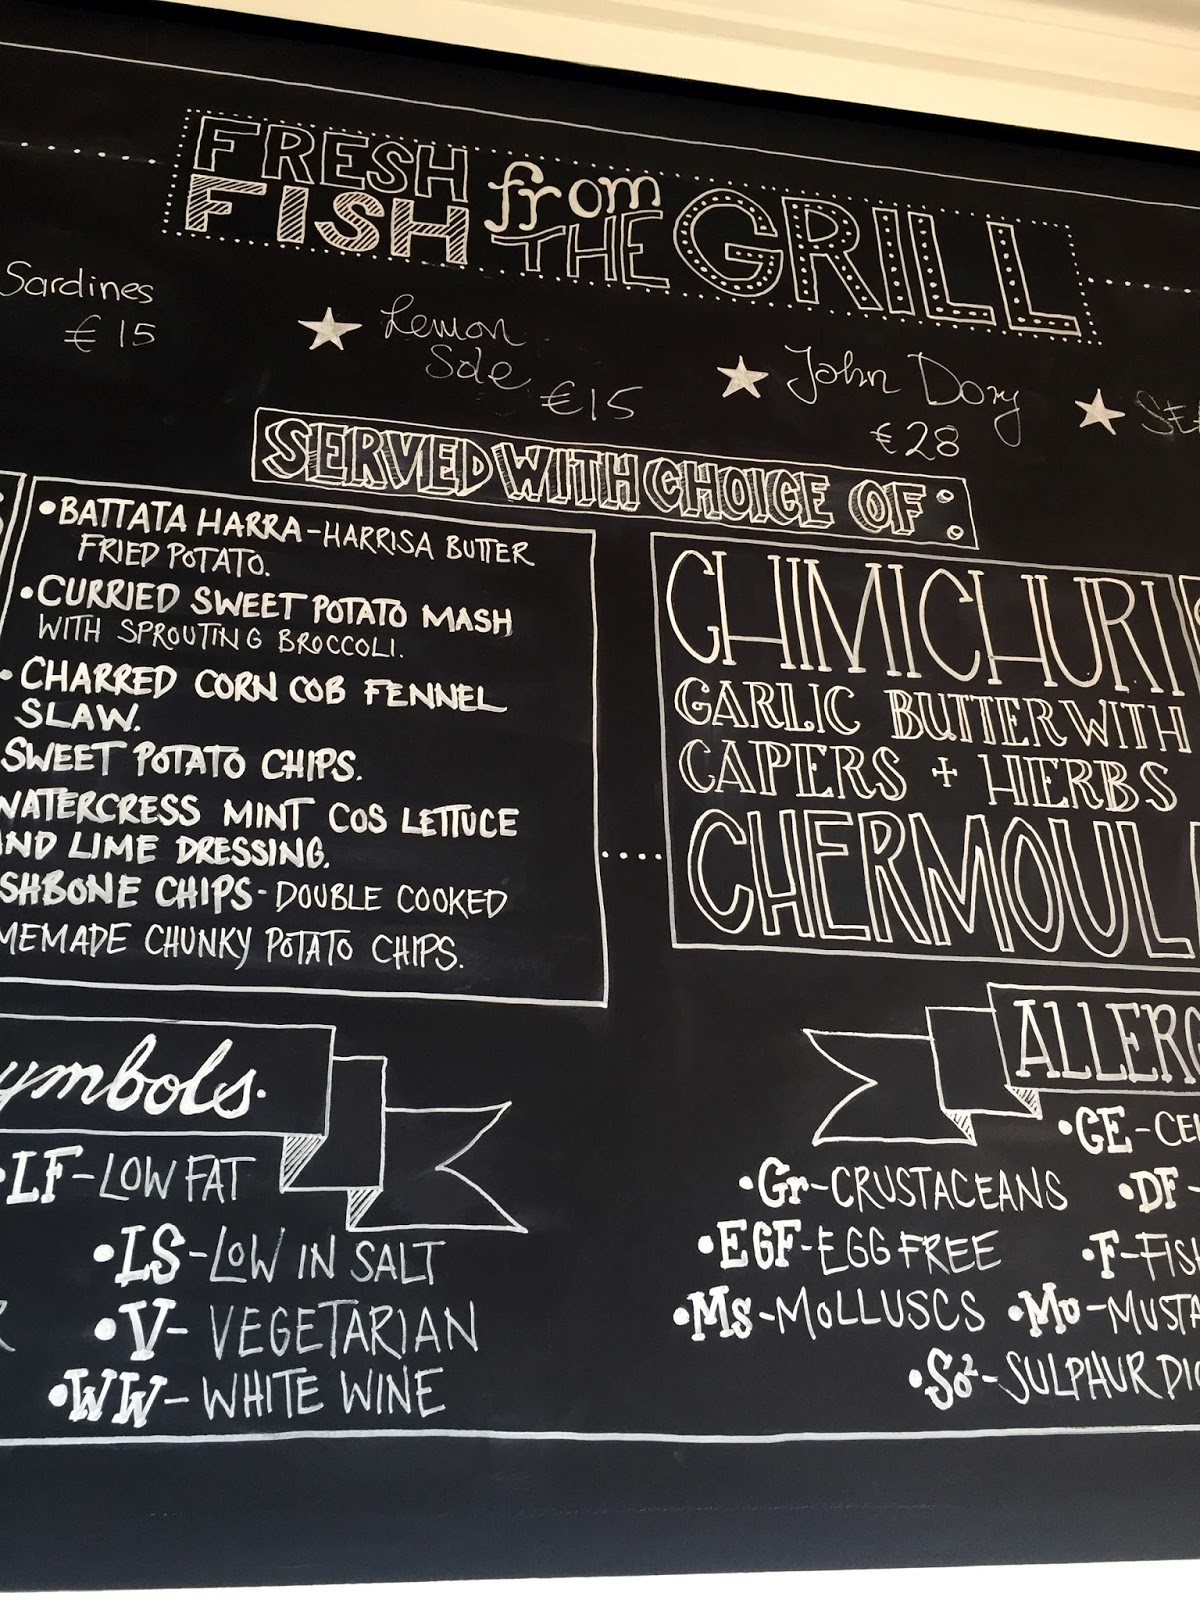 FRESH FISH from THE GRILL
Sardines
€15
Lemon
Sole
€15
John Dory
€28
SERVED WITH CHOICE OF:
• BATTATA HARRA-HARRISA BUTTER
FRIED POTATO.
• CURRIED SWEET POTATO MASH
WITH SPROUTING BROCCOLI.
• CHARRED CORN COB FENNEL
SLAW.
SWEET POTATO CHIPS.
WATERCRESS MINT COS LETTUCE
AND LIME DRESSING.
SHBONE CHIPS-DOUBLE COOKED
MEMADE CHUNKY POTATO CHIPS.
CHIMICHURI
GARLIC BUTTER WITH
CAPERS + HERBS
CHERMOUL
ymbols.
• LF-LOW FAT
• LS-LOW IN SALT
• V-VEGETARIAN
• WW-WHITE WINE
ALLERG
• GE-CE
• Gr-CRUSTACEANS • DF-
• EGF-EGG FREE • F-FISH
• Ms-MOLLUSCS • Mu-MUSTA
• So²-SULPHUR DIO